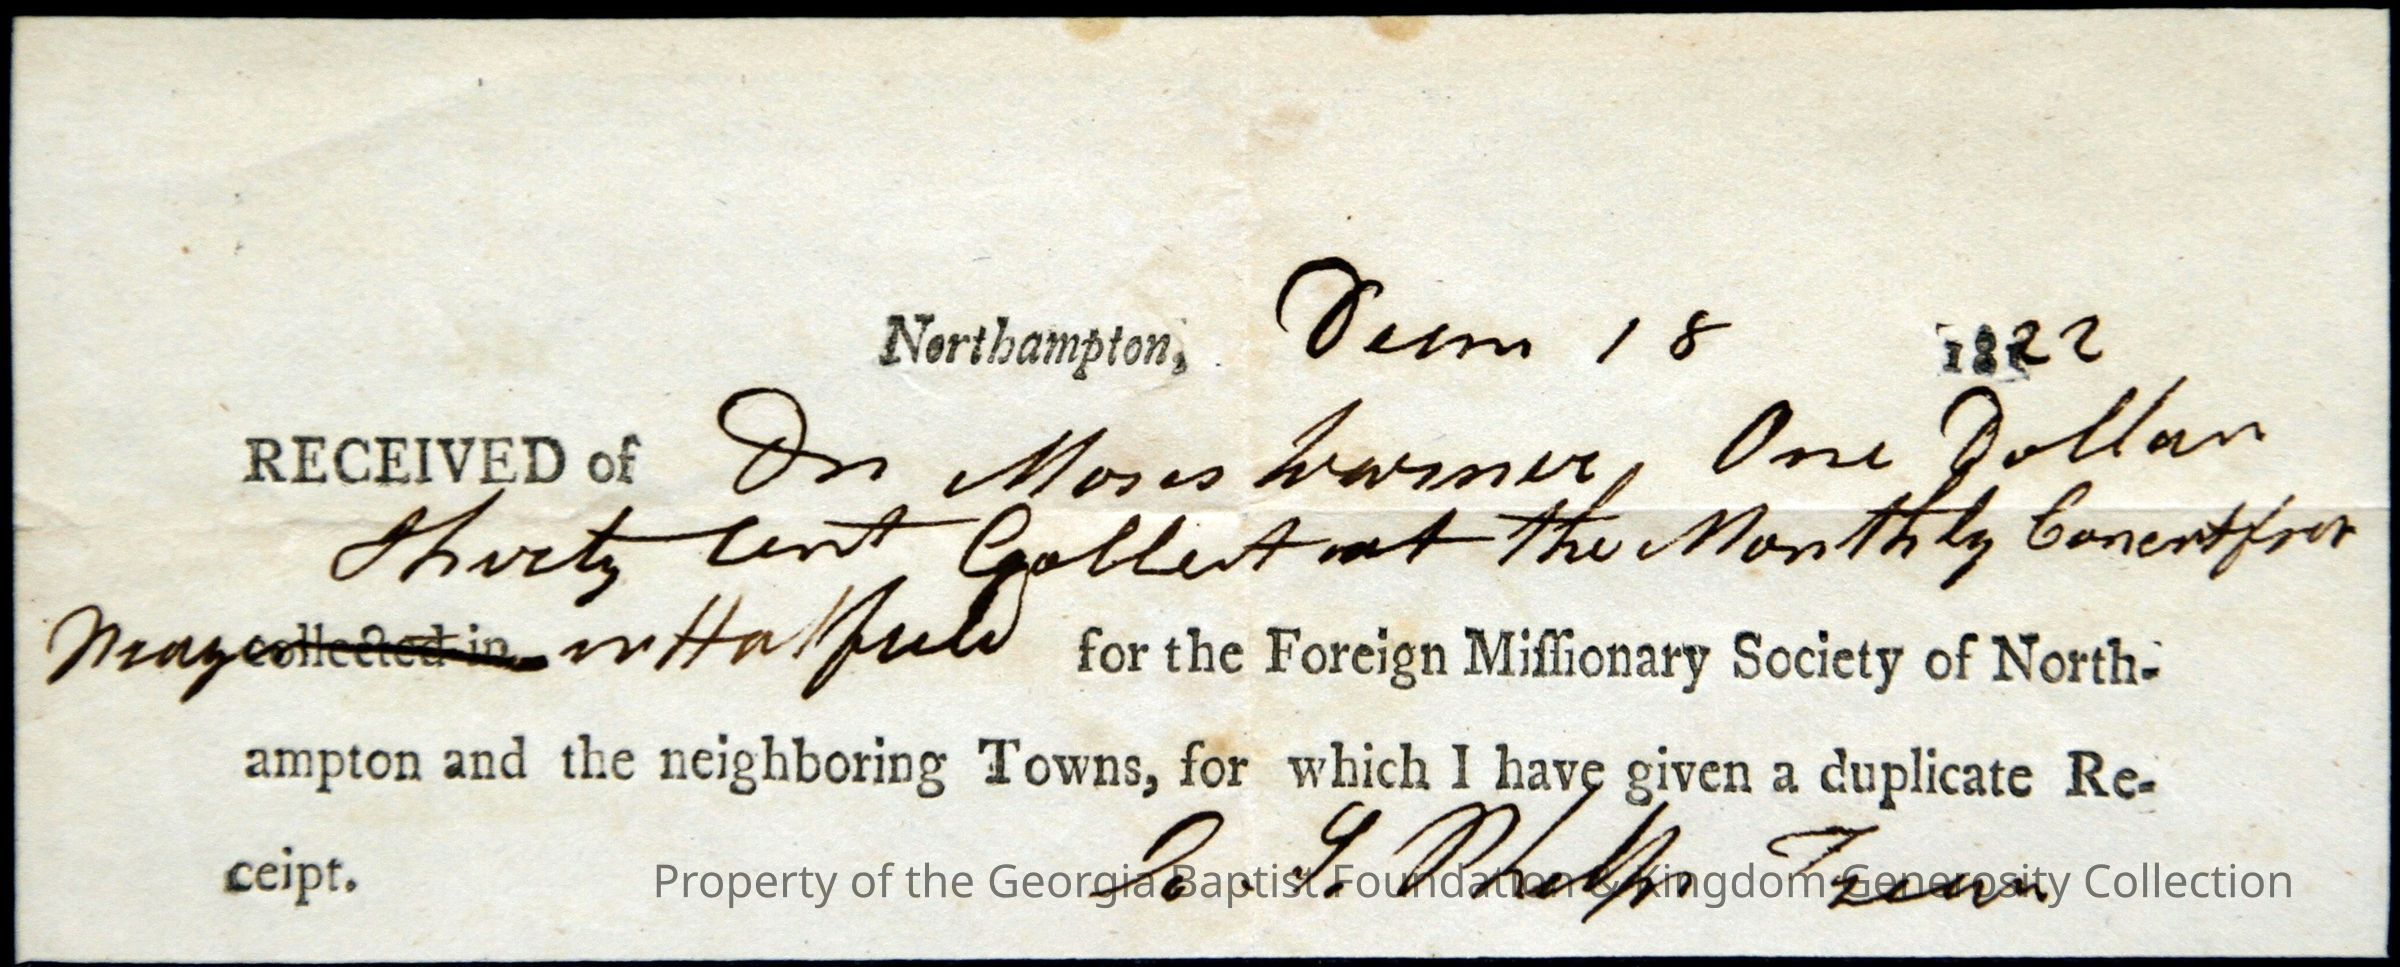 Northampton, Decm 18 1822
RECEIVED of Dn Moses Warner, One Dollar
thirty Cent Collect at the Monthly Concert for
collected in in Hatfield for the Foreign Miſſionary Society of North-
ampton and the neighboring Towns, for which I have given a duplicate Re-
ceipt.
S. Phelps
Property of the Georgia Baptist Foundation & Kingdom Generosity Collection